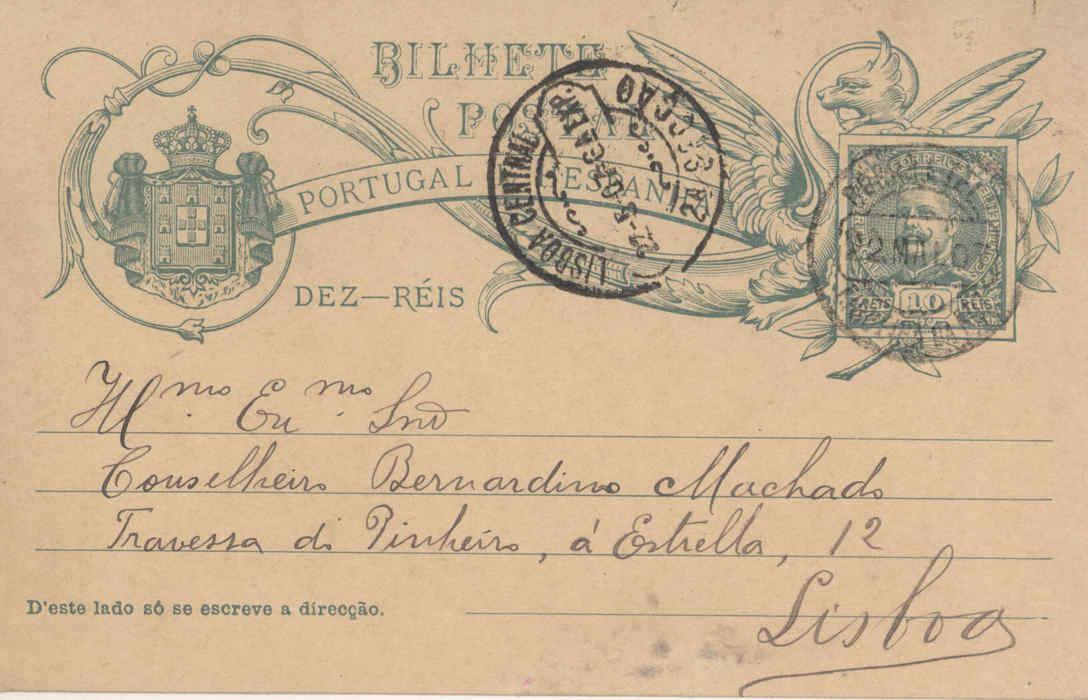 BILHETE
POSTAL
PORTUGAL E HESPANHA
DEZ—RÉIS
LISBOA CENTRAL
2ª SECÇÃO
CORREIOS
2 MAI 07
REIS 10 RÉIS
Illmo. Exmo. Snr
Conselheiro Bernardino Machado
Travessa do Pinheiro, á Estrella, 12
Lisboa
D'este lado só se escreve a direcção.